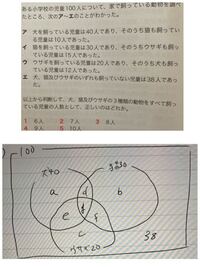 ある小学校の児童100人について、家で飼っている動物を調べ
たところ、次のア~エのことがわかった。
ア 犬を飼っている児童は40人であり、そのうち猫も飼っ
ている児童は10人であった。
イ 猫を飼っている児童は30人であり、そのうちウサギも飼っ
ている児童は15人であった。
ウ ウサギを飼っている児童は20人であり、そのうち犬も飼っ
ている児童は12人であった。
エ 犬、猫及びウサギのいずれも飼っていない児童は38人であ
った。
以上から判断して、犬、猫及びウサギの3種類の動物をすべて飼っ
ている児童の人数として、正しいのはどれか。
1 6人 2 7人 3 8人
4 9人 5 10人
100
犬40
ネコ30
a d b
g
e f
c
ウサギ20
38